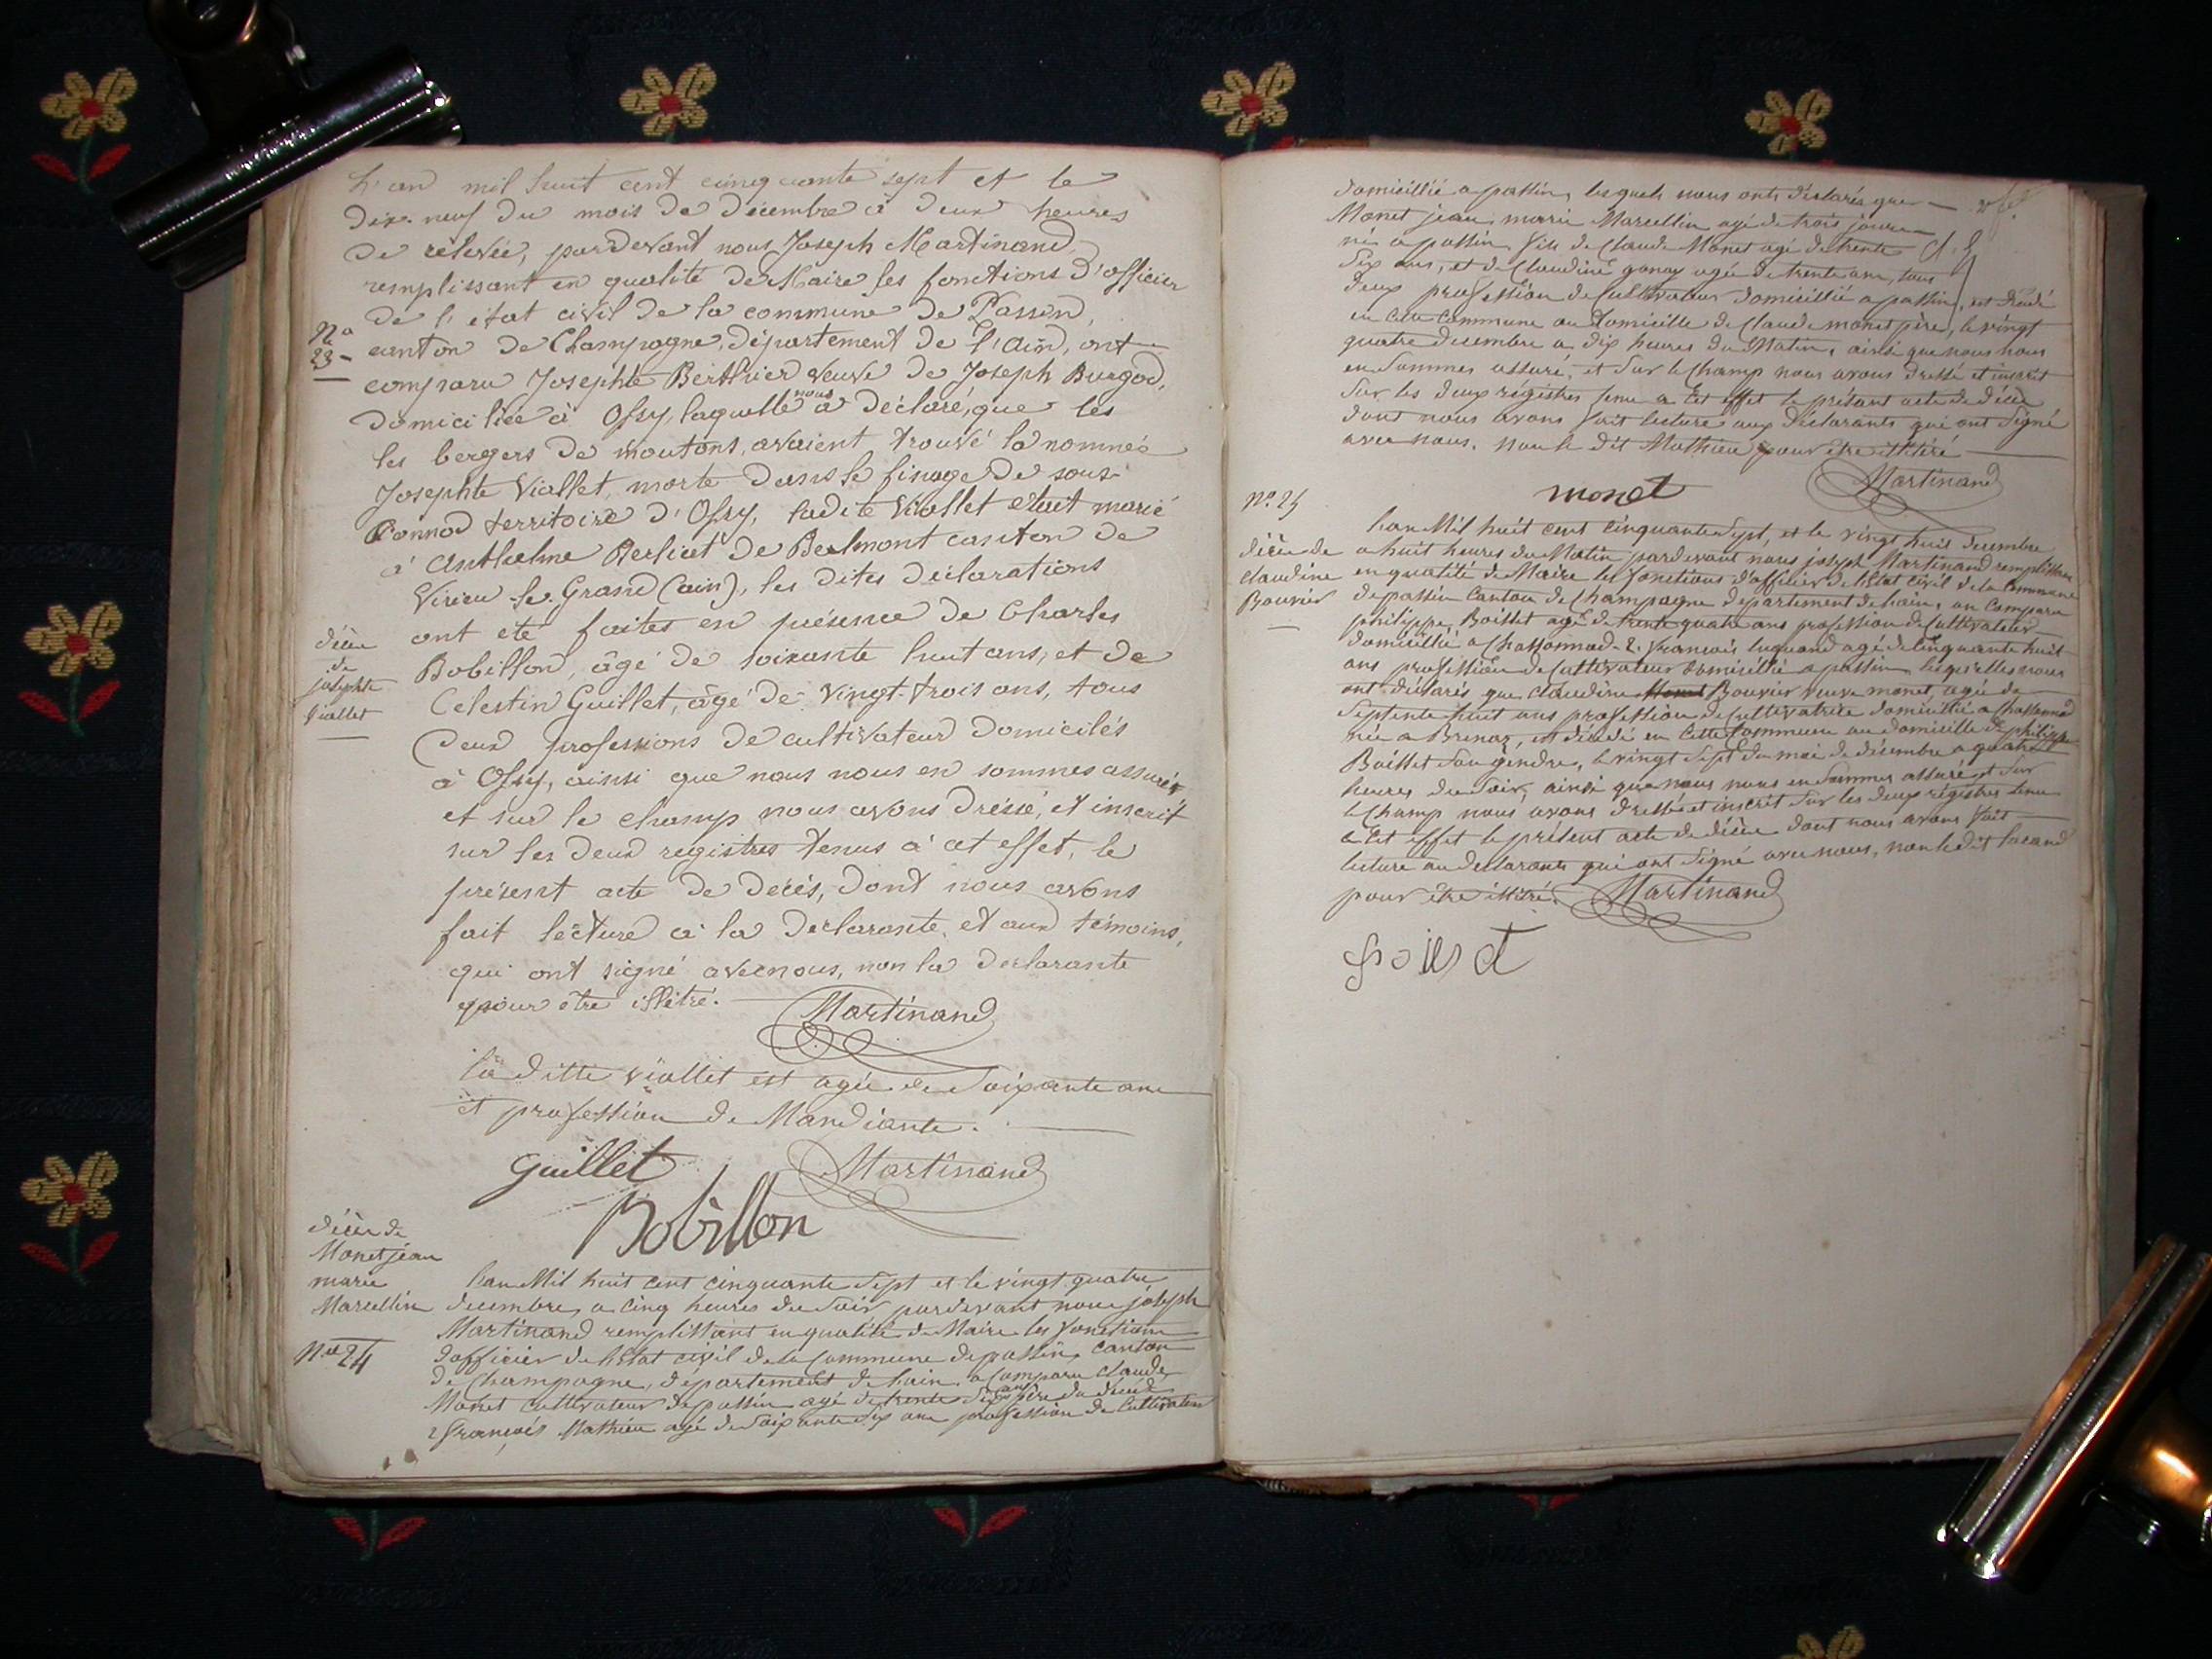 L'an mil huit cent cinquante sept et le
dix-neuf du mois de decembre à deux heures
de relevée, pardevant nous Joseph Martinand
remplissant en qualité de Maire les fonctions d'officier
de l'état civil de la commune de Passin,
No 23
canton de Champagne, département de l'Ain, ont
comparu Josephte Berthier veuve de Joseph Burgod,
domiciliée à Ossy, laquelle nous a déclaré, que les
les bergers de moutons, avaient trouvé la nomnée
Josephte Viallet, morte dans le finage de sous-
Connod territoire d'Ossy, ladite Viallet etait marié
à Anthelme Berliat de Belmont canton de
Virieu-le-Grand (ain), les dites déclarations
ont eté faites en présence de Charles
Bobillon, âgé de soixante huit ans, et de
Célestin Guillet, âgé de vingt-trois ans, tous
deux professions de cultivateur domiciliés
à Ossy, ainsi que nous nous en sommes assurés
et sur le champ nous avons dréssé, et inscrit
sur les deux registres tenus à cet effet, le
présent acte de décès, dont nous avons
fait lecture à la declarante, et aux témoins,
qui ont signé avec nous, non la declarante
pour être illétré.
Martinand
décès
de
josephte
Viallet
la ditte viallet est agée de Soixante ans
et profession de Mandiante.
Guillet
Martinand
Bobillon
décès de
Monet jean
marie
Marcellin
No 24
lan Mil huit cent cinquante Sept et le vingt quatre
decembre, a cinq heures du Soir pardevant nous joseph
Martinand remplissant en qualité de Maire les fonctions
dofficier de lEtat civil de la Commune de passin, canton
de Champagne, département de lain, a Comparu claude
Monet cultivateur de passin agé de trente Six ans père du décédé
2 françois Mathieu agé de Soixante Six ans profession de Cultivateur
domicillié a passin, lesquels nous onts déclarés que
Monet jean marie Marcellin agé de trois jours
né a passin fils de Claude Monet agé de trente
Six ans, et de Claudine gonay agée de trente ans, tous
deux profession de Cultivateur domicillié a passin, est décédé
en Cette Commune au domicille de Claude monet père, le vingt
quatre decembre a dix heures du Matin, ainsi que nous nous
en Sommes assuré, et Sur le Champ nous avons dressé et inscrit
Sur les deux régistres tenu a Cet effet le présant acte de décès
dont nous avons fait lecture aux déclarants qui ont Signé
avec nous, non le dit Mathieu pour être illétéré
monet
Martinand
No. 25
décès de
claudine
Bouvier
lan Mil huit cent Cinquante Sept, et le vingt huit decembre
a huit heures du Matin pardevant nous joseph Martinand remplissant
en qualité de Maire les fonctions dofficier de lEtat civil de la Commune
de passin Canton de Champagne departement de lain, on Comparu
philippe Boillet agé de trente quatre ans profession de Cultivateur
domicillié a Chassonnod, 2. françois luquand agé de Cinquante huit
ans profession de Cultivateur domicillié a passin lesquelles nous
ont déclarés que claudine Bouvier veuve monet, agée de
Septente huit ans profession de Cultivatrice domicillié a Chassonnod
née a Brenaz, est décédé en Cette Commune au domicille de philippe
Boillet Son gendre, le vingt Sept du mois de décembre a quatre
heures du Soir, ainsi que nous nous en Sommes assuré et Sur
le Champ nous avons dressé et inscrit Sur les deux régistres tenu
a Cet effet le présent acte de décès dont nous avons fait
lecture au declarants qui ont Signé avec nous, non le dit
pour être illétéré.
Martinand